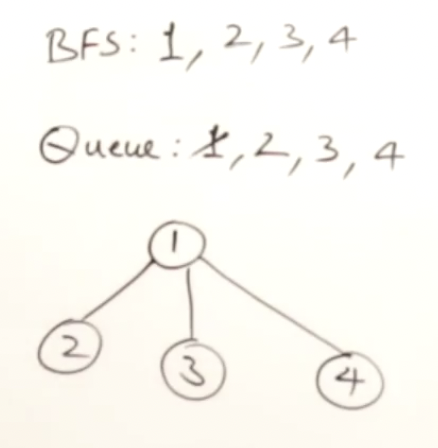 BFS: 1, 2, 3, 4
Queue: 1, 2, 3, 4
1
2 3 4